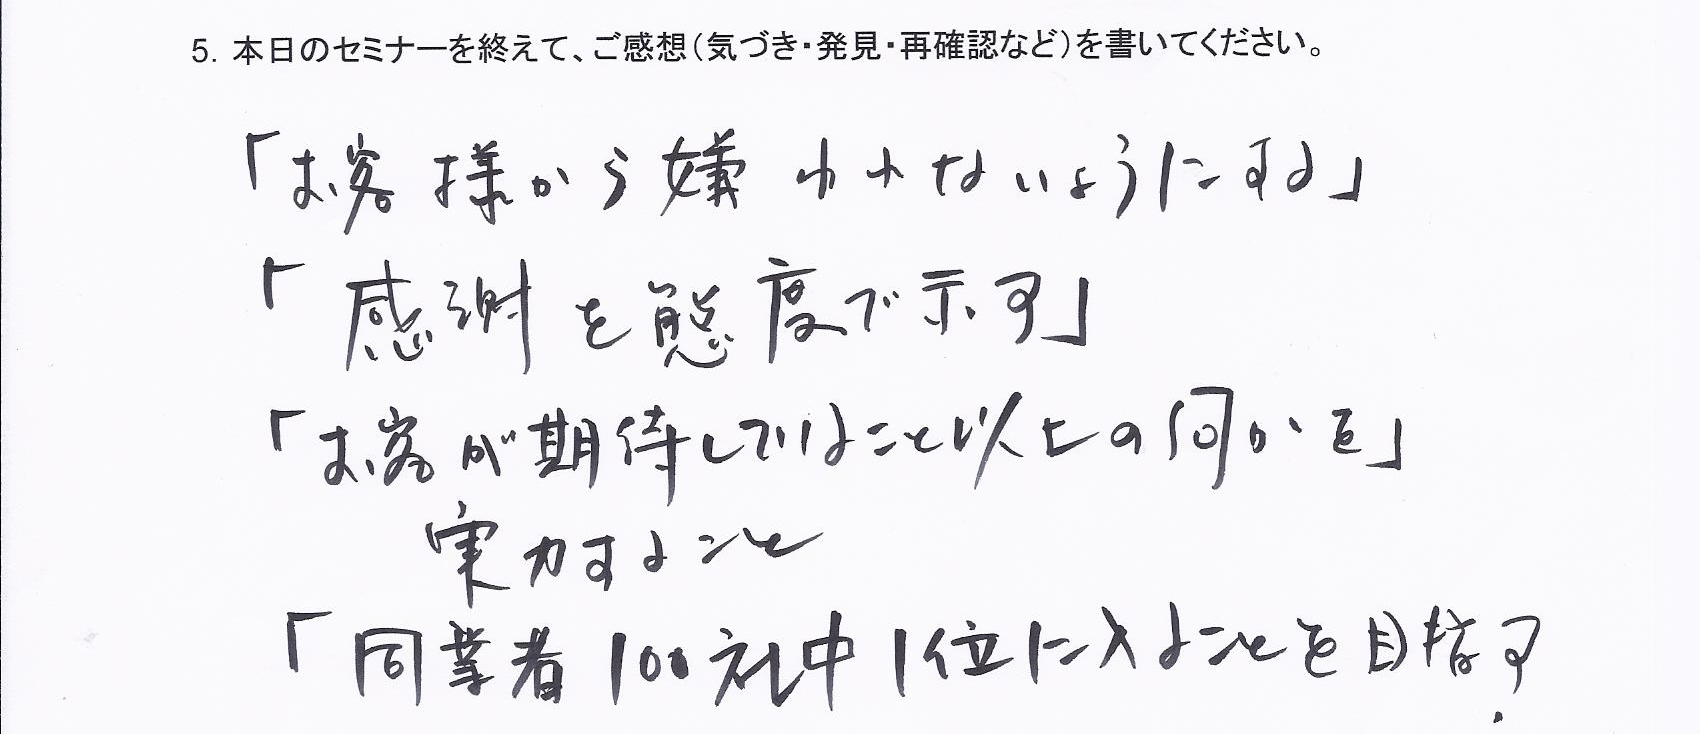 5. 本日のセミナーを終えて、ご感想(気づき・発見・再確認など)を書いてください。
「お客様から嫌われないようにする」
「感謝を態度で示す」
「お客が期待していること以上の何かを」
実力すること
「同業者100社中1位に入ることを目指す.